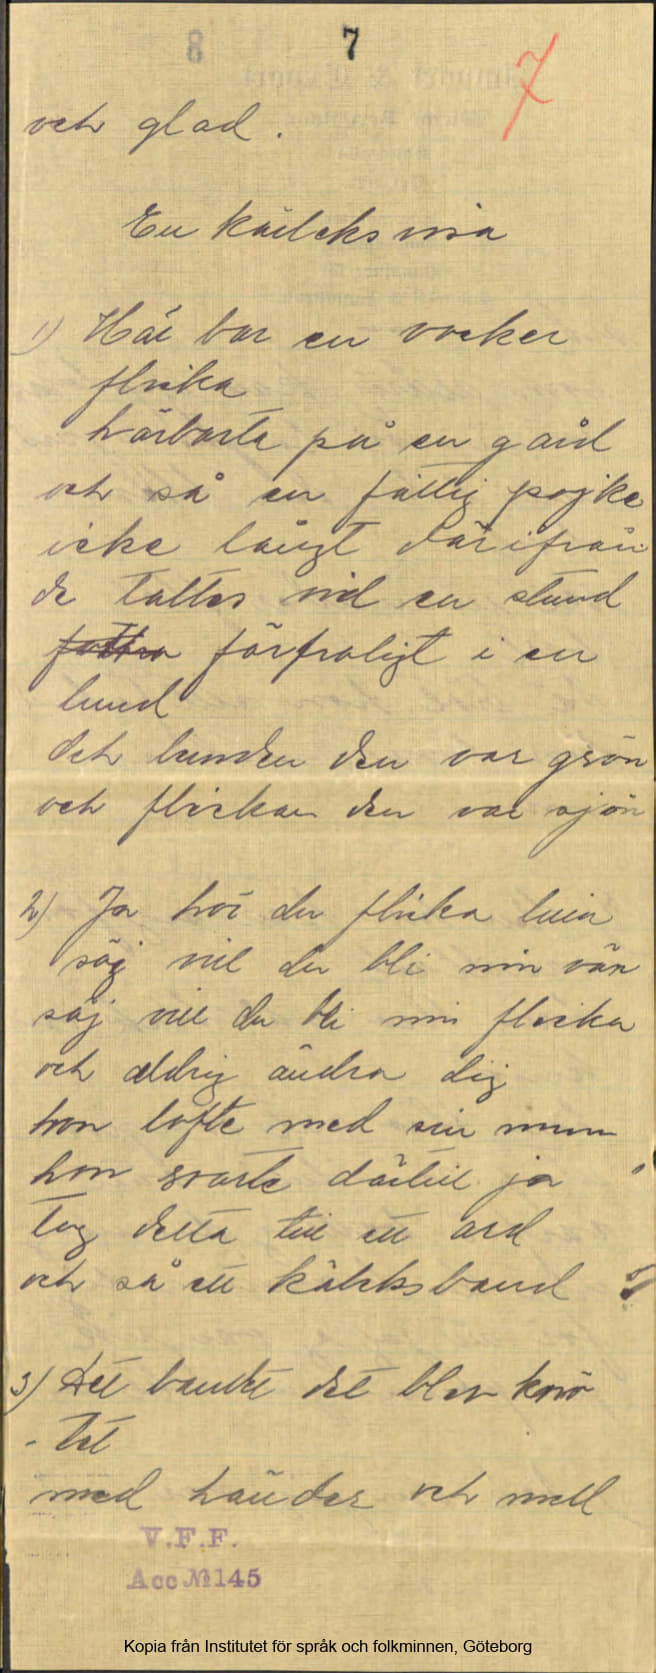 8 7 7
och glad.
En käleks visa
1) Här bor en vacker
flicka
härborta på en gård
och så en fattig pojke
icke långt därifrån
de taltes vid en stund
förtroligt i en
lund
och lunden den var grön
och flickan den var sjön
2) Ja hör du flicka lilla
säg vill du bli min vän
säj vill du bli min flicka
och aldrig ändra dig
hon lofte med sin mun
hon svarte därtill ja
tog detta till ett ord
och så ett käleksband
3) Det bandet det blev knö
-tet
med händer och med
V.F.F.
Acc № 145
Kopia från Institutet för språk och folkminnen, Göteborg